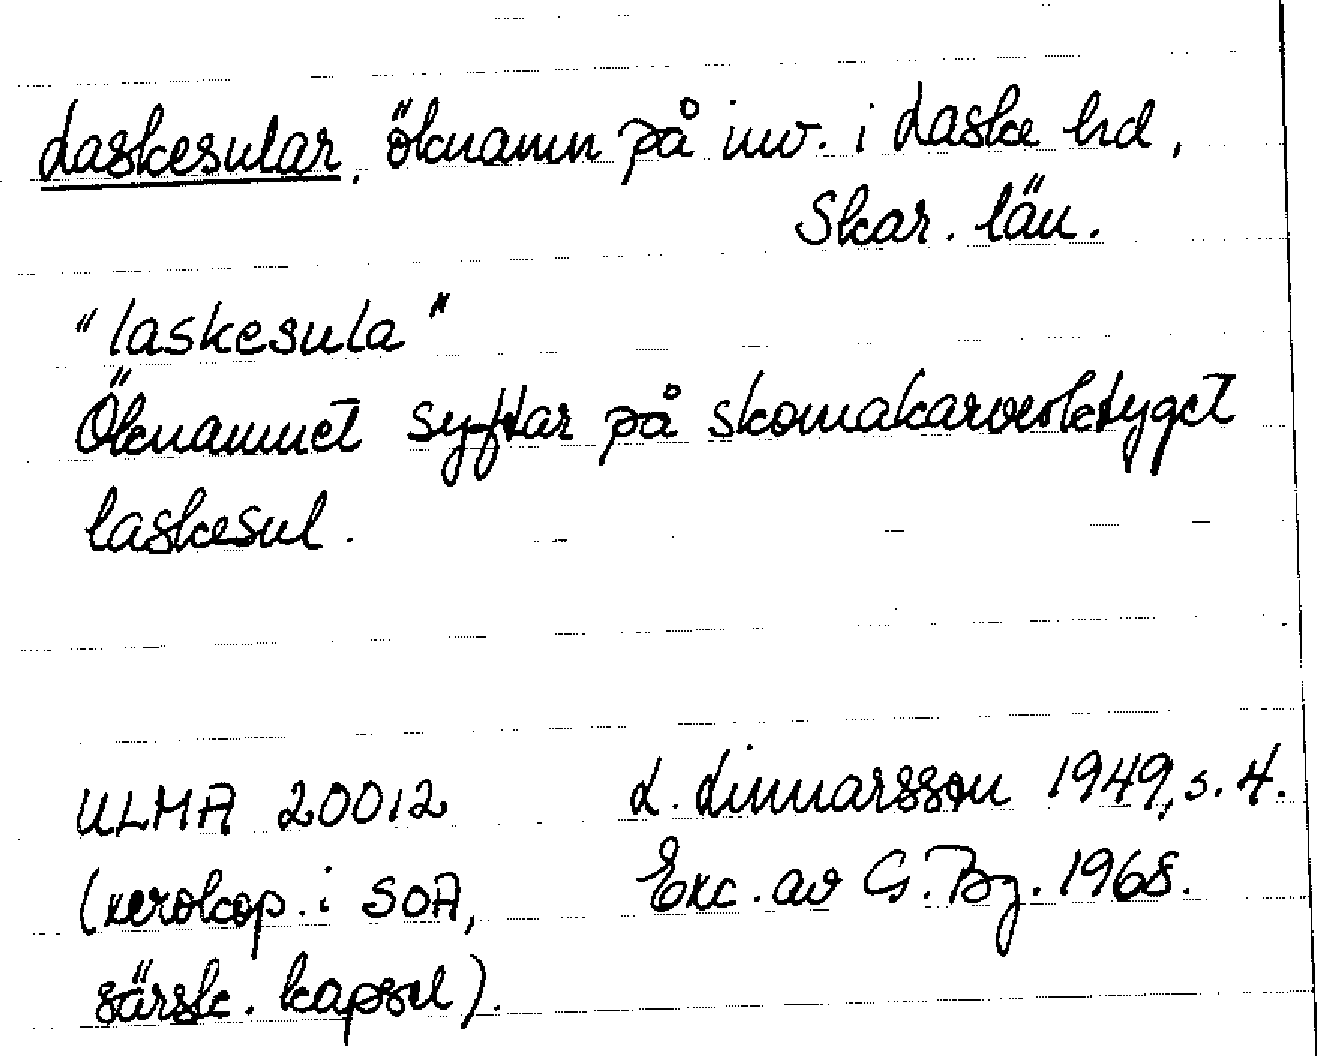 Laskesular, öknamn på inv. i Laske hd,
Skar. län.
"laskesula"
Öknamnet syftar på skomakarverktyget
laskesul.
ULMA 20012 L. Linnarsson 1949, s. 4.
(xerokop. i SOA, Exc. av G. Bg. 1968.
särsk. kapsel).